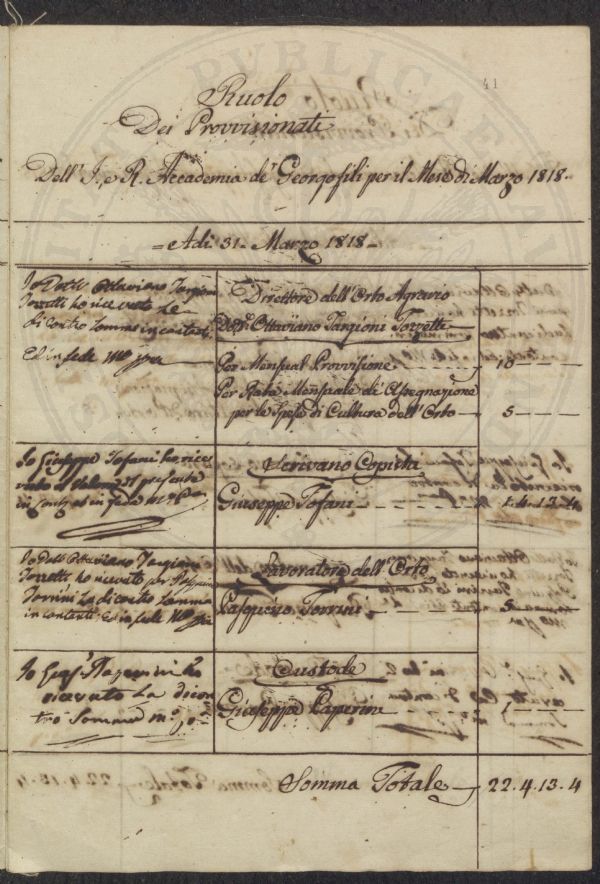 41
Ruolo
Dei Provvisionati
Dell' I. e R. Accademia de' Georgofili per il Mese di Marzo 1818.
= Adi 31. Marzo 1818 =
Io Dott. Ottaviano Targioni
Tozzetti ho ricevuto la
di contro somma in contanti
Ed in fede
Direttore dell'Orto Agrario
Dott. Ottaviano Targioni Tozzetti
Per Mensual Provvisione 10
Per Rata Mensuale di Assegnazione
per le Spese di Cultura dell'Orto 5
Io Giuseppe Tofani ho rice
vuto
in fede
Scrivano Copista
Giuseppe Tofani 1.4.13.4
Io Dott. Ottaviano Targioni
Tozzetti ho ricevuto per Pasquino
Torrini la di contro somma
in contanti Ed in fede
Lavoratore dell'Orto
Pasquino Torrini 5
Io Gius. Paperini ho
ricevuto la dicon
tro Somma
Custode
Giuseppe Paperini
Somma Totale 22.4.13.4